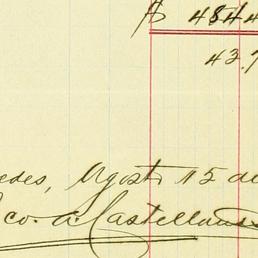 $ 4844
43.7
edes, Agost 15 de
co. a. Castellanos